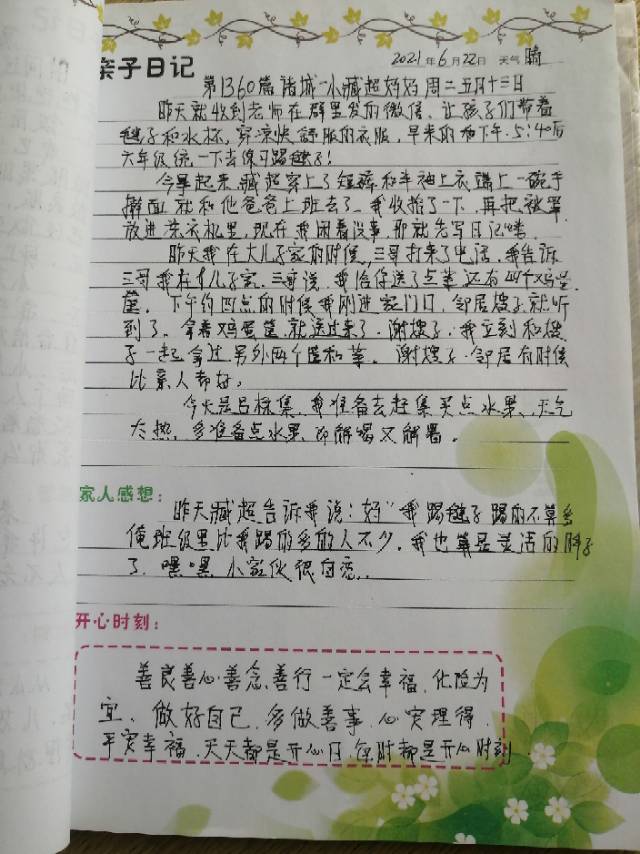 亲子日记
2021年6月22日 天气晴
第1360篇 诸城一小臧超妈妈 周二五月十三日
昨天就收到老师在群里发的微信、让孩子们带着
毽子和水杯,穿凉快舒服的衣服,早来的和下午.5:40后
六年级统一下去练习踢毽子!
今早起来,臧超穿上了短裤和半袖上衣,端上一碗手
擀面就和他爸爸上班去了。我收拾了一下,再把被罩
放进洗衣机里,现在我闲着没事,那就先写日记喽
昨天我在大儿子家的时候,三哥打来了电话,我告诉
三哥我在儿子家,三哥说,我给你送了点菜还有四个鸡蛋
筐。下午约四点的时候我刚进家门口,邻居嫂子就听
到了。拿着鸡蛋筐就送过来了.谢嫂子.我立刻和嫂
子一起拿过另外两个筐和菜。谢嫂子.邻居有时候
比亲人都好。
今天是吕标集,我准备去赶集买点水果、天气
太热,多准备点水果即解渴又解暑。
家人感想:
昨天臧超告诉我说:妈"我踢毽子踢的不算多
俺班级里比我踢的多的人不少,我也算是灵活的胖子
了、嘿嘿、小家伙很自恋..
开心时刻:
善良善心.善念善行一定会幸福、化险为
宜、做好自己、多做善事、心安理得、
平安幸福、天天都是开心日、每时都是开心时刻